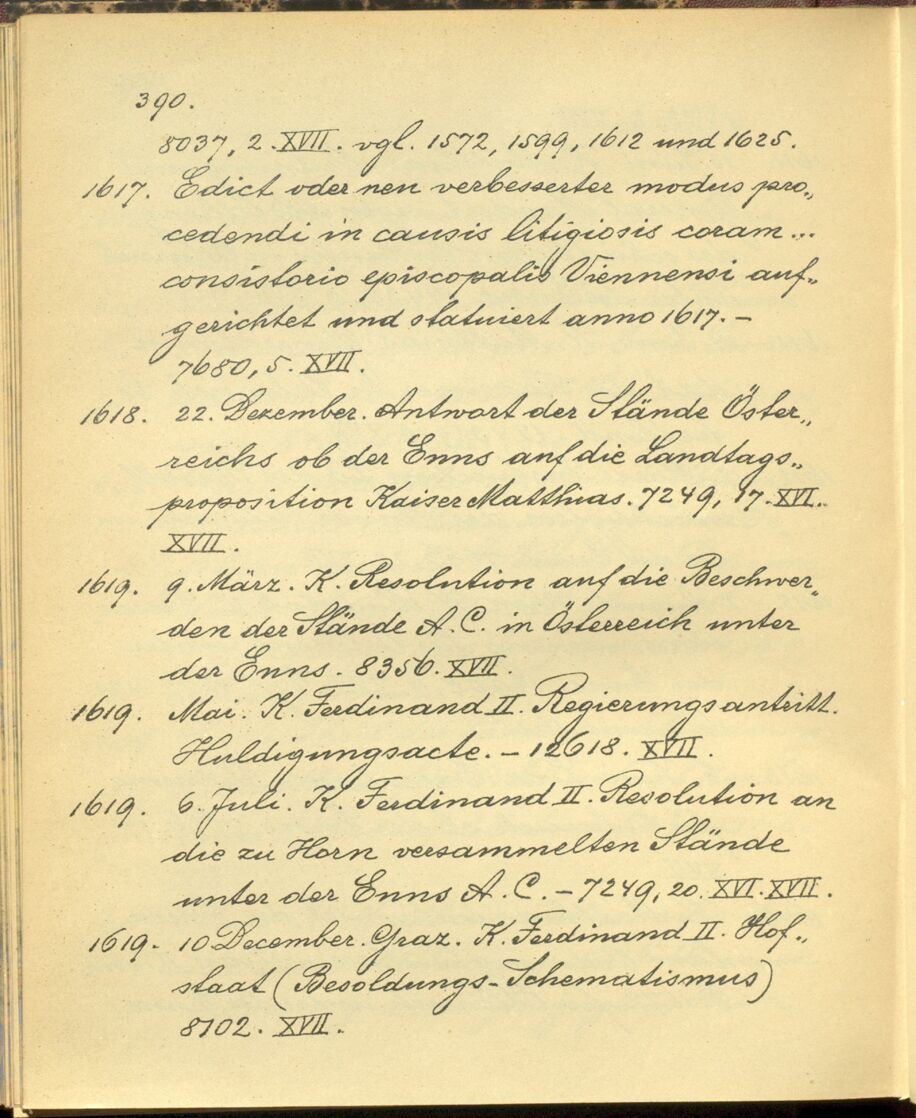 390.
8037, 2. XVII. vgl. 1572, 1599, 1612 und 1625.
1617. Edict oder neu verbesserter modus pro„
cedendi in causis litigiosis coram ...
consistorio episcopalis Viennensi auf„
gerichtet und statuiert anno 1617. –
7680, 5. XVII.
1618. 22. Dezember. Antwort der Stände Öster„
reichs ob der Enns auf die Landtags„
proposition Kaiser Matthias. 7249, 17. XVI.
XVII.
1619. 9. März. K. Resolution auf die Beschwer„
den der Stände A. C. in Österreich unter
der Enns. 8356. XVII.
1619. Mai. K. Ferdinand II. Regierungsantritt.
Huldigungsacte. – 12618. XVII.
1619. 6. Juli. K. Ferdinand II. Resolution an
die zu Horn versammelten Stände
unter der Enns A. C. – 7249, 20. XVI. XVII.
1619. 10 December. Graz. K. Ferdinand II. Hof„
staat (Besoldungs-Schematismus)
8102. XVII.